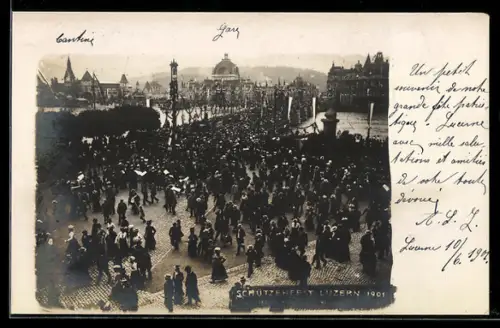 Cantine
Gare
Un petit
souvenir de notre
grande fête patrio-
tique. Lucerne
avec mille salu-
tations et amitiés
de votre toute
dévouée
Lucerne 10/6. 1901.
SCHÜTZENFEST LUZERN 1901